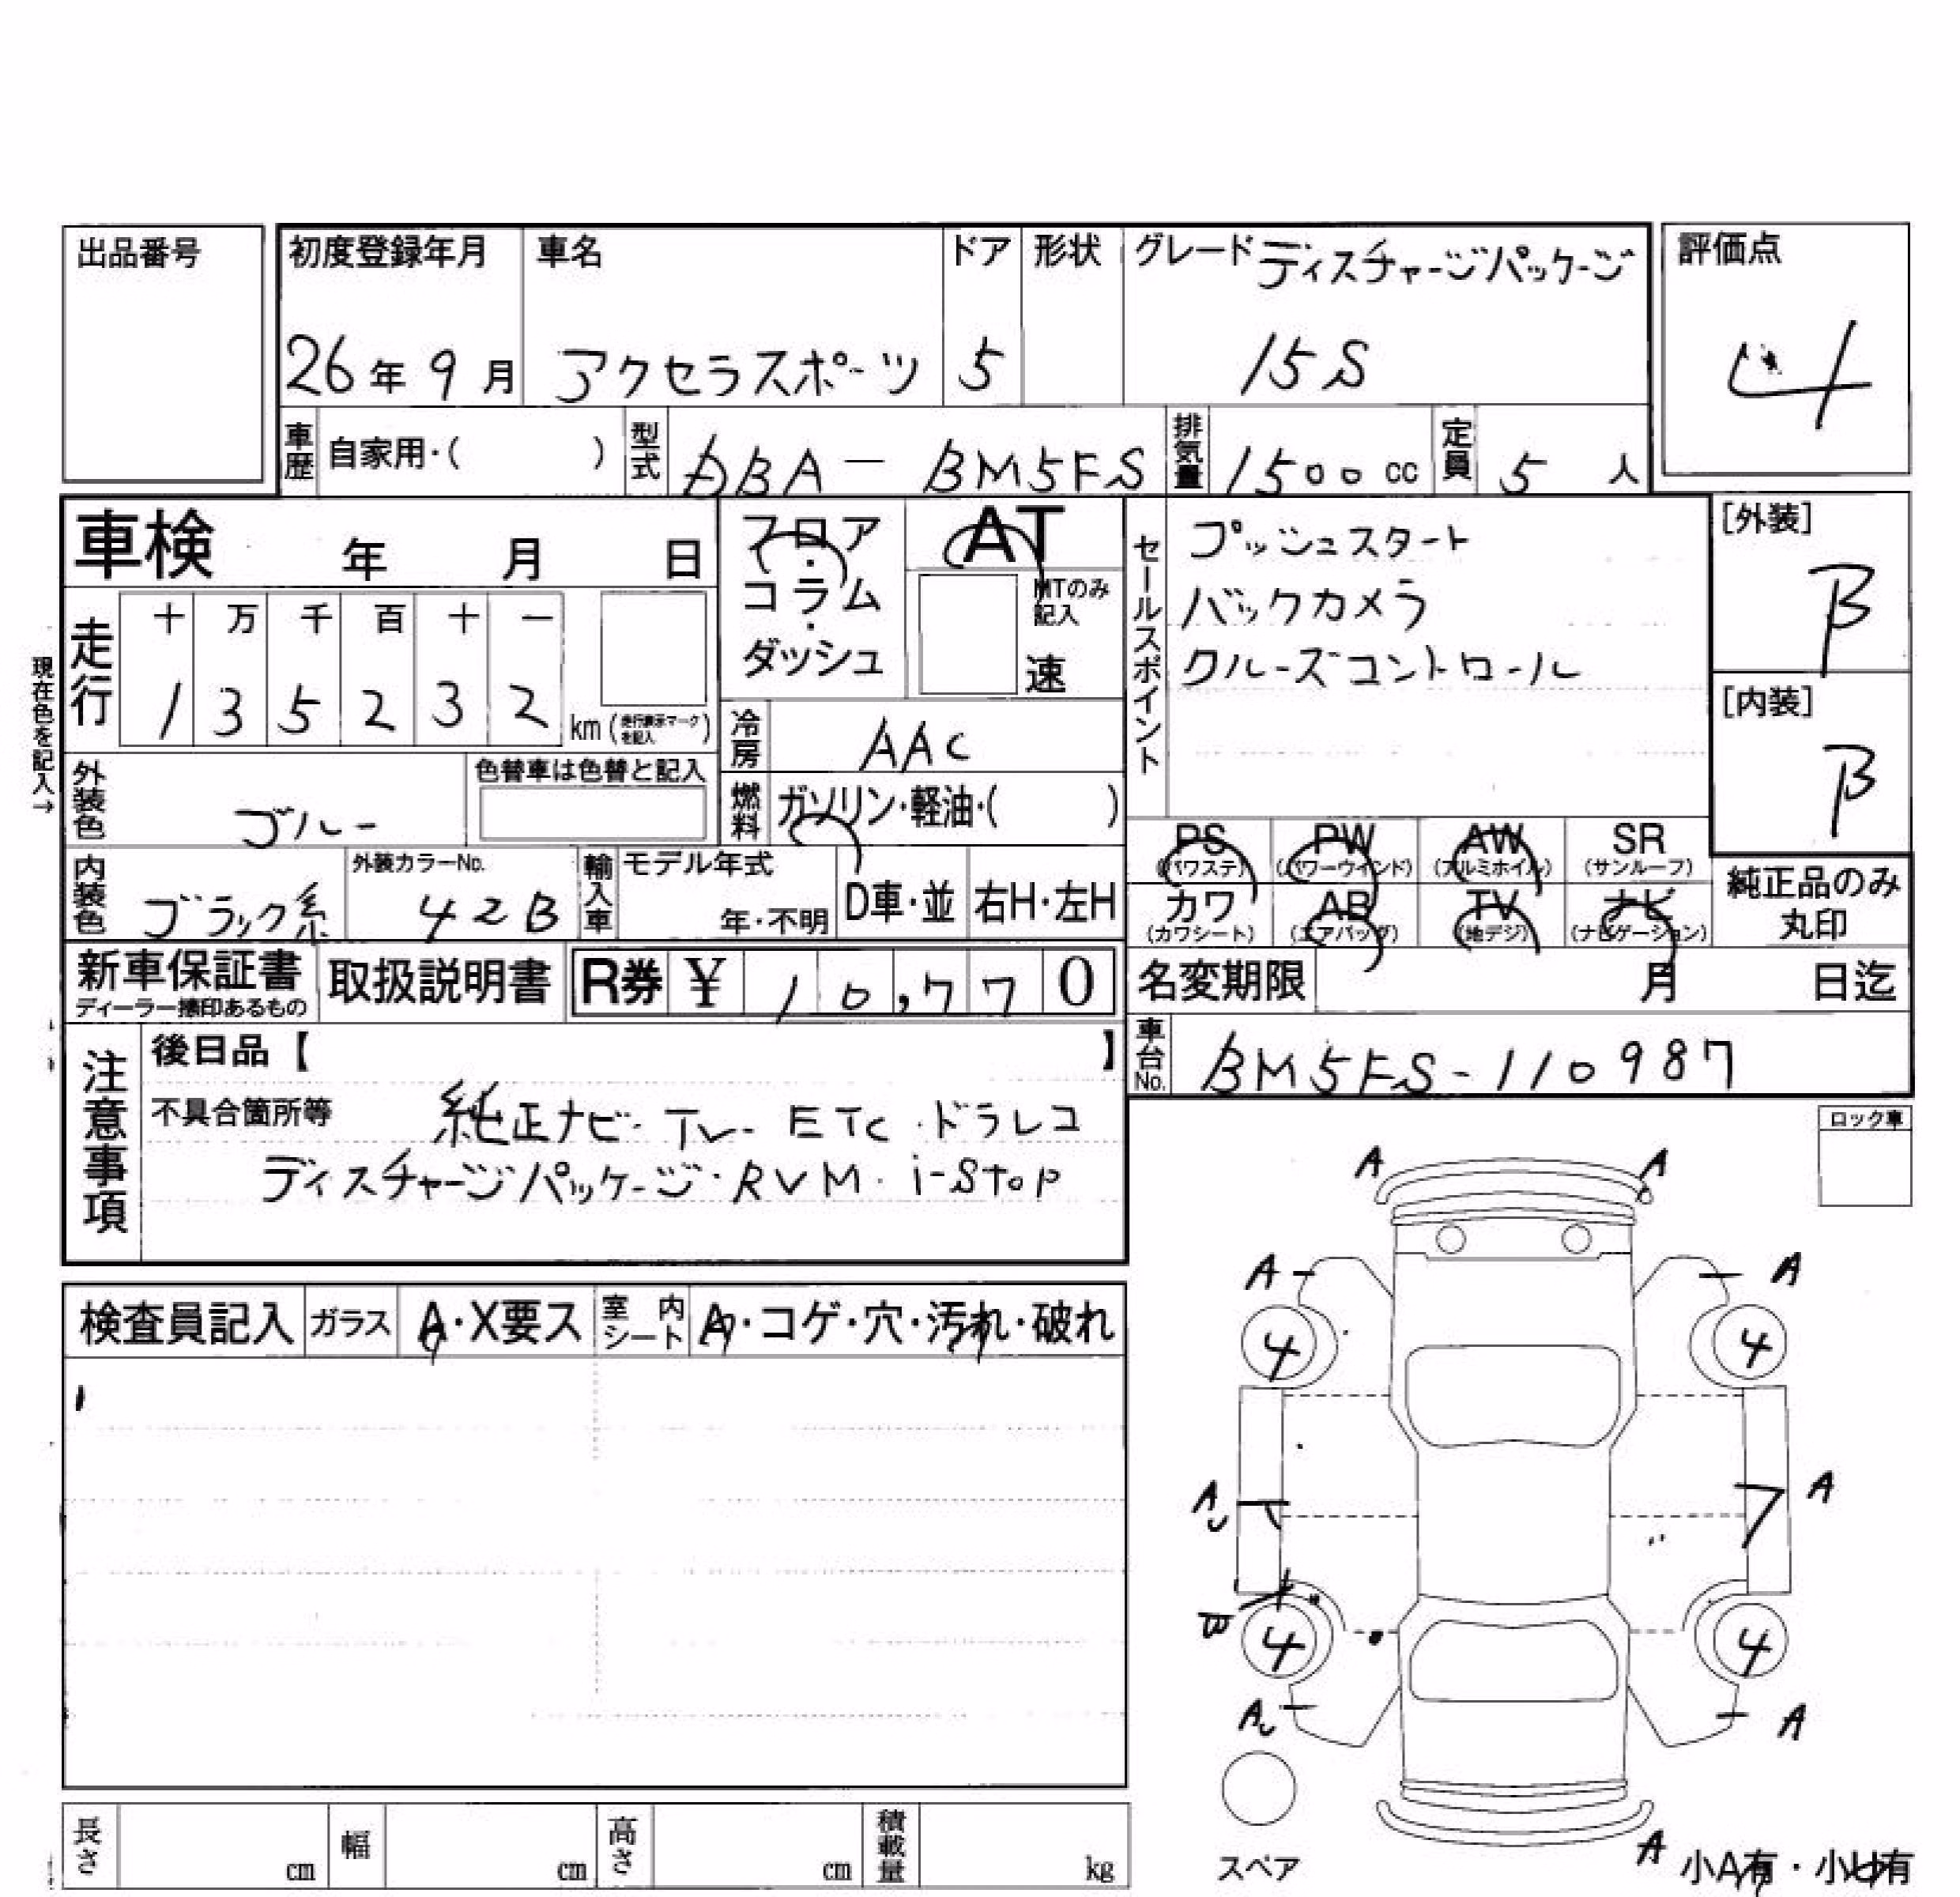 出品番号
初度登録年月 車名 ドア 形状 グレード ディスチャージパッケージ
26年9月 アクセラスポーツ 5 15S
評価点
4
車歴 自家用・( ) 型式 DBA-BM5FS 排気量 1500cc 定員 5人
車検 年 月 日
フロア・コラム・ダッシュ
AT
MTのみ記入
速
セールスポイント
プッシュスタート
バックカメラ
クルーズコントロール
[外装]
B
[内装]
B
現在色を記入→
走行 十 万 千 百 十 一
1 3 5 2 3 2 km (走行表示マークを記入)
冷房 AAC
外装色 ブルー 色替車は色替と記入
燃料 ガソリン・軽油・( )
内装色 ブラック系 外装カラーNo. 42B
輸入車 モデル年式 年・不明 D車・並 右H・左H
PS (パワステ) PW (パワーウインド) AW (アルミホイル) SR (サンルーフ)
カワ (カワシート) AB (エアバッグ) TV (地デジ) ナビ (ナビゲーション)
純正品のみ丸印
新車保証書 ディーラー捺印あるもの 取扱説明書 R券 ¥ 10,770
名変期限 月 日迄
車台No. BM5FS-110987
注意事項
後日品【 】
不具合箇所等 純正ナビ・TV・ETC・ドラレコ
ディスチャージパッケージ・RVM・i-stop
ロック車
検査員記入 ガラス A・X要ス 室内シート A・コゲ・穴・汚れ・破れ
A A
A A
4 4
A A
4 4
A A
スペア
A 小A有・小U有
長さ cm 幅 cm 高さ cm 積載量 kg